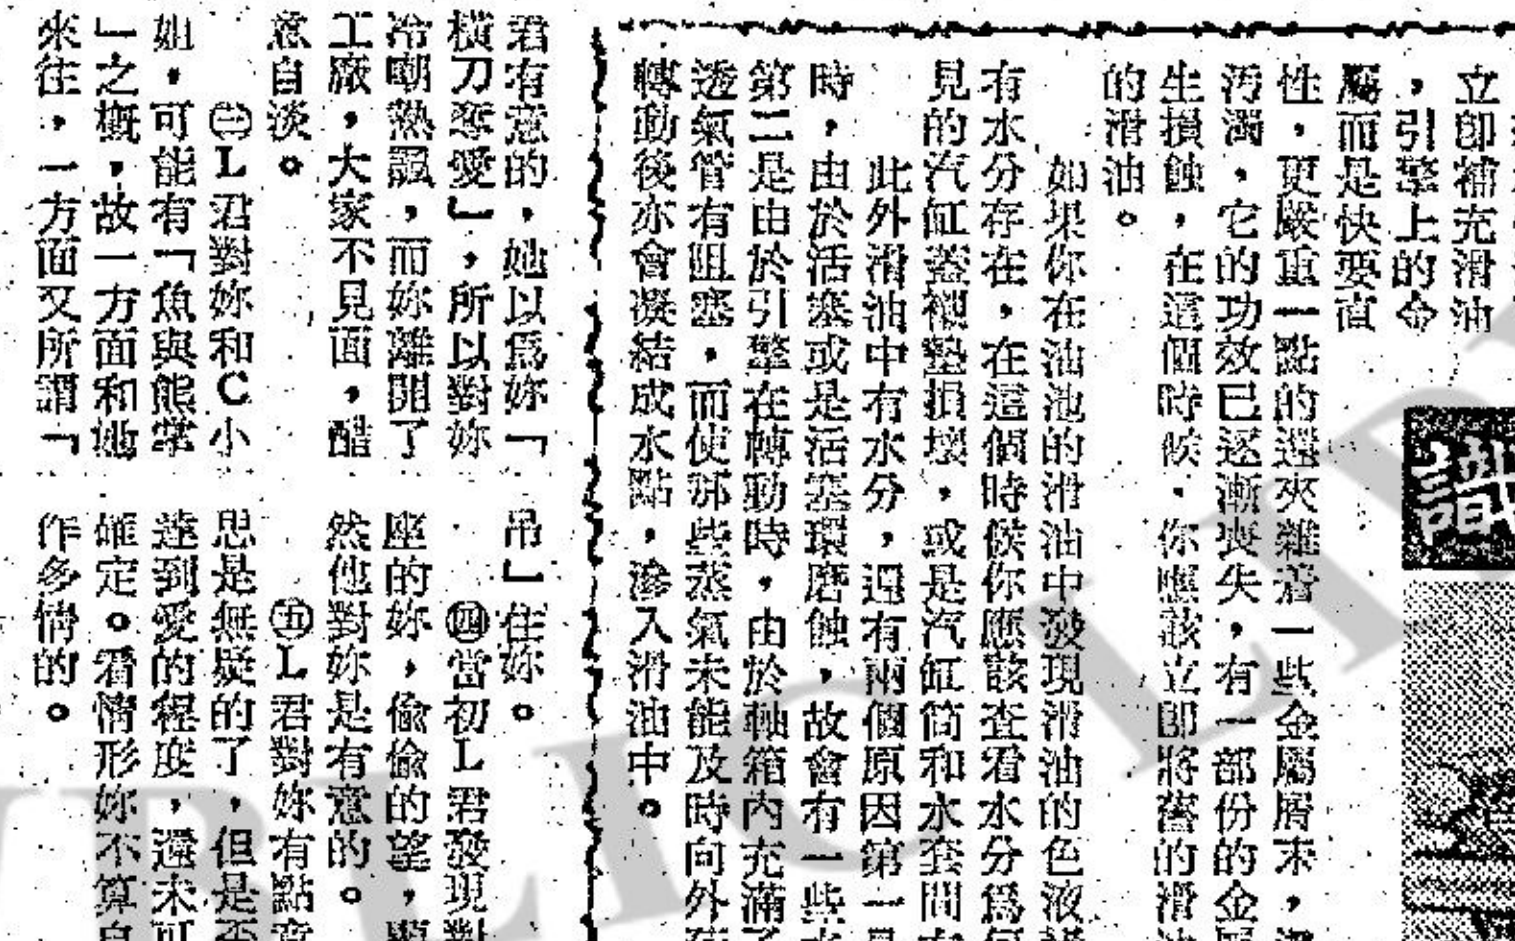 立卽補充滑油
，引擎上的令
屬而是快要直
性，更嚴重一點的還夾雜着一些金屬屑末，
污濁，它的功效已逐漸喪失，有一部份的金
生損蝕，在這個時候，你應該立卽將舊的滑
的滑油。
如果你在油池的滑油中發現滑油的色液
有水分存在，在這個時候你應該查看水分爲何
見的汽缸蓋襯墊損壞，或是汽缸筒和水套間
此外滑油中有水分，還有兩個原因第一是
時，由於活塞或是活塞環磨蝕，故會有一些水
第二是由於引擎在轉動時，由於軸箱內充滿了
透氣管有阻塞，而使那些蒸氣未能及時向外
轉動後亦會凝結成水點，滲入滑油中。
識
君有意的，她以爲妳「
橫刀奪愛」，所以對妳
冷嘲熱諷，而妳離開了
工廠，大家不見面，酷
意自淡。
㊂L君對妳和C小
姐，可能有「魚與熊掌
」之概，故一方面和她
來往，一方面又所謂「
吊」住妳。
㊃當初L君發現對
座的妳，偸偸的望，
然他對妳是有意的。
㊄L君對妳有點意
思是無疑的了，但是否
達到愛的程度，還未可
確定。看情形妳不算自
作多情的。